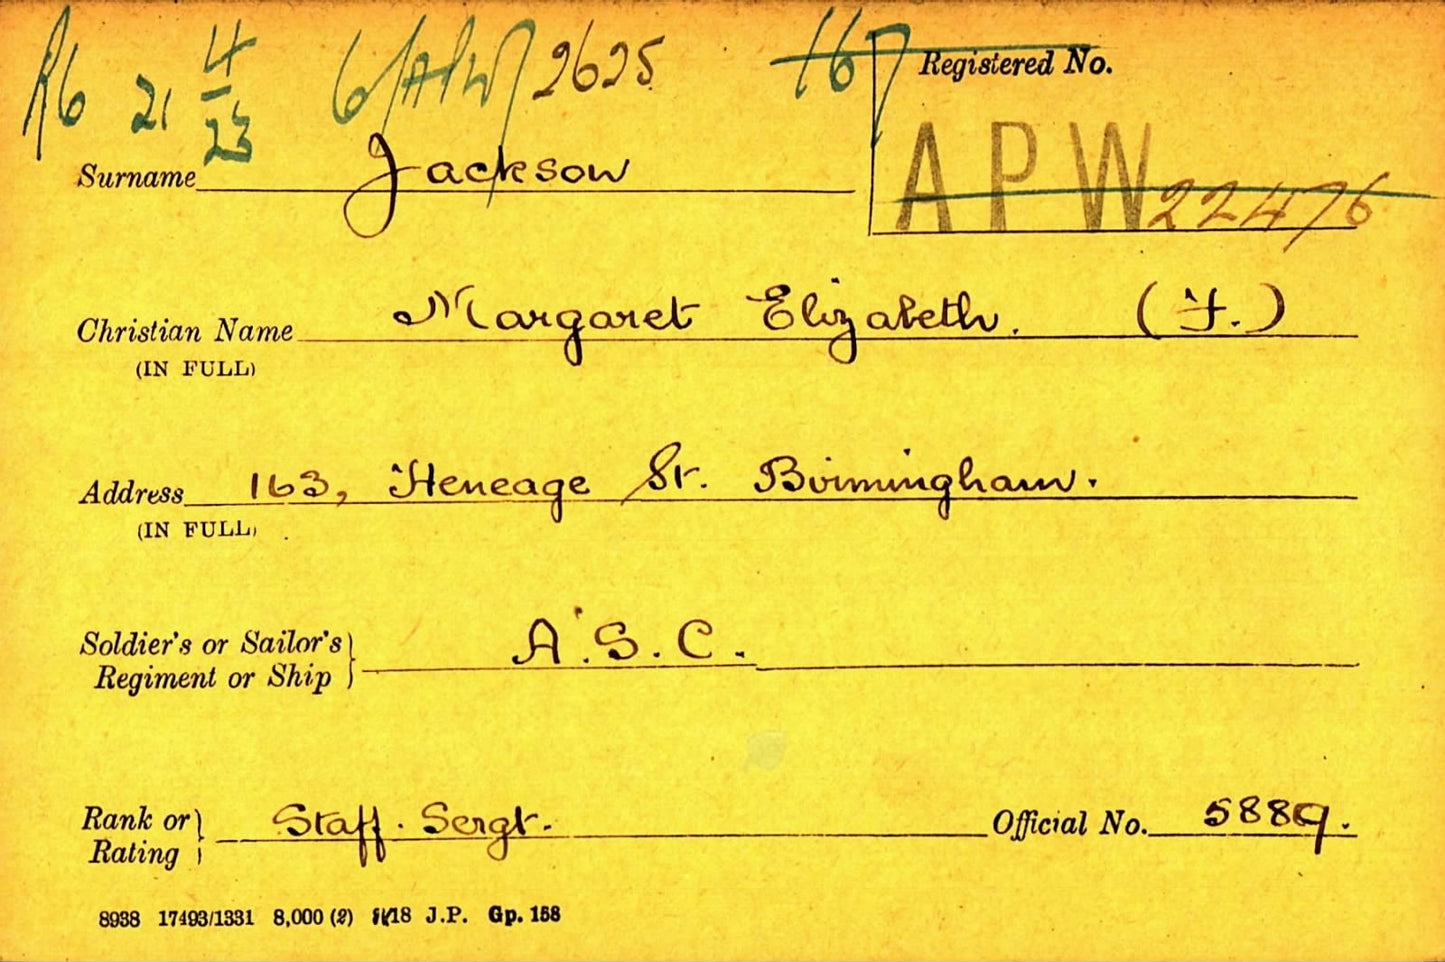 R6 21 4/23 6/APW/2625 167
Registered No.
APW 22476
Surname Jackson
Christian Name Margaret Elizabeth. (F.)
(IN FULL)
Address 163, Heneage St. Birmingham.
(IN FULL)
Soldier's or Sailor's
Regiment or Ship A.S.C.
Rank or
Rating Staff. Sergt. Official No. 5889.
8938 17493/1331 8,000 (2) 18 J.P. Gp. 158